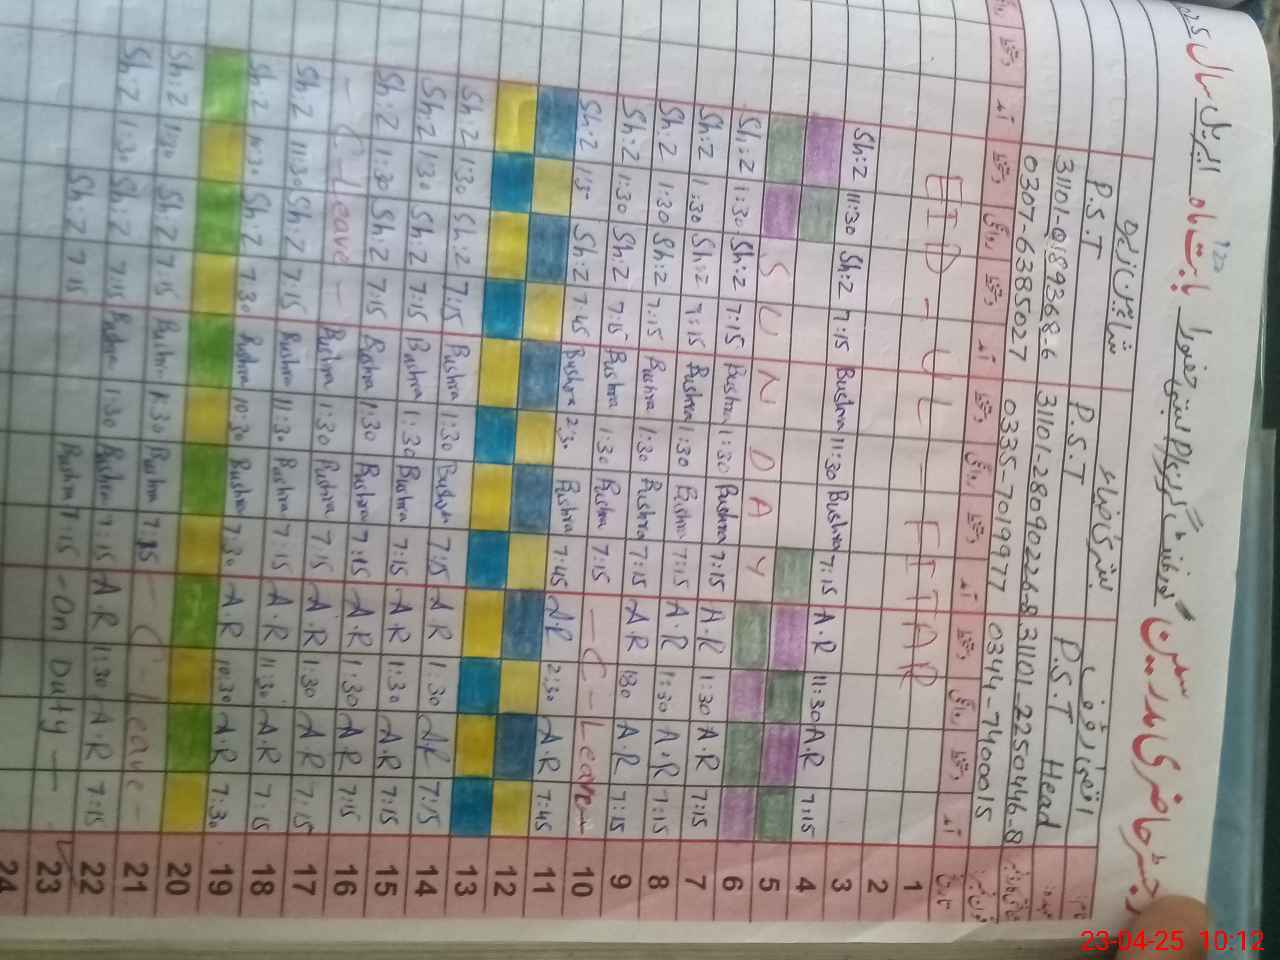 رجسٹر حاضری مدرسین
بابت ماہ اپریل سال
P.S.T P.S.T P.S.T Head
31101-0189368-6 31101-2809022-6-8 31101-2250446-8
0307-6385027 0335-7019977 0344-7400015
1
EID-UL-FITAR 2
3
Sh:Z 11:30 Sh:Z 7:15 Bushra 11:30 Bushra 7:15 A.R 11:30 A.R 7:15 4
5
SUNDAY 6
Sh:Z 1:30 Sh:Z 7:15 Bushra 1:30 Bushra 7:15 A.R 1:30 A.R 7:15 7
Sh:Z 1:30 Sh:Z 7:15 Bushra 1:30 Bushra 7:15 A.R 1:30 A.R 7:15 8
Sh:Z 1:30 Sh:Z 7:15 Bushra 1:30 Bushra 7:15 A.R 1:30 A.R 7:15 9
Sh:Z 1:30 Sh:Z 7:15 Bushra 1:30 Bushra 7:15 -C-Leave- 10
Sh:Z Sh:Z 7:45 Bushra 2:30 Bushra 7:45 A.R 2:30 A.R 7:45 11
12
13
Sh:Z 1:30 Sh:Z 7:15 Bushra 1:30 Bushra 7:15 A.R 1:30 A.R 7:15 14
Sh:Z 1:30 Sh:Z 7:15 Bushra 1:30 Bushra 7:15 A.R 1:30 A.R 7:15 15
Sh:Z 1:30 Sh:Z 7:15 Bushra 1:30 Bushra 7:15 A.R 1:30 A.R 7:15 16
-C-leave- Bushra 1:30 Bushra 7:15 A.R 1:30 A.R 7:15 17
Sh:Z 11:30 Sh:Z 7:15 Bushra 11:30 Bushra 7:15 A.R 11:30 A.R 7:15 18
Sh:Z 10:30 Sh:Z 7:30 Bushra 10:30 Bushra 7:30 A.R 10:30 A.R 7:30 19
20
Sh:Z 1:30 Sh:Z 7:15 Bushra 1:30 Bushra 7:15 -C-Leave- 21
Sh:Z 1:30 Sh:Z 7:15 Bushra 1:30 Bushra 7:15 A.R 1:30 A.R 7:15 22
Sh:Z 7:15 Bushra 7:15 -On Duty- 23
24
23-04-25 10:12